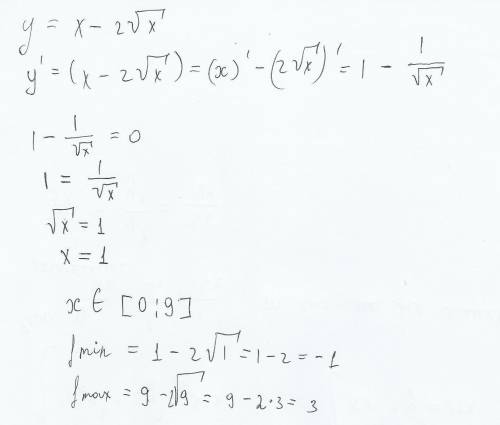 y = x - 2√x
y' = (x - 2√x)' = (x)' - (2√x)' = 1 - 1/√x
1 - 1/√x = 0
1 = 1/√x
√x = 1
x = 1
x ∈ [0;9]
fmin = 1 - 2√1 = 1 - 2 = -1
fmax = 9 - 2√9 = 9 - 2·3 = 3